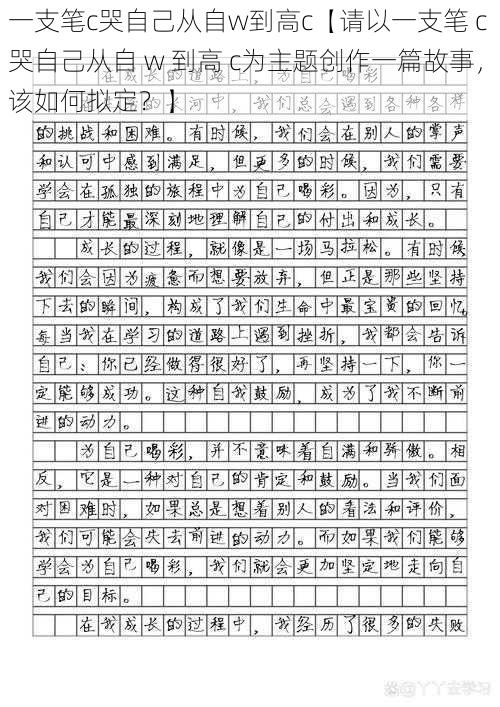 一支笔c哭自己从自w到高c【请以一支笔 c
哭自己从自 w 到高 c为主题创作一篇故事，
该如何拟定？】
在成长的道路上，为自己喝彩
河中，我们总会遇到各种各样
的挑战和困难。有时候，我们会在别人的掌声
和认可中感到满足，但更多的时候，我们需要
学会在孤独的旅程中为自己喝彩。因为，只有
自己才能最深刻地理解自己的付出和成长。
成长的过程，就像是一场马拉松。有时候
我们会因为疲惫而想要放弃，但正是那些坚持
下去的瞬间，构成了我们生命中最宝贵的回忆
每当我在学习的道路上遇到挫折，我都会告诉
自己：你已经做得很好了，再坚持一下，你一
定能够成功。这种自我鼓励，成为了我不断前
进的动力。
为自己喝彩，并不意味着自满和骄傲。相
反，它是一种对自己的肯定和鼓励。当我们面
对困难时，如果总是想着别人的看法和评价，
我们可能会失去前进的动力。而如果我们能够
学会为自己喝彩，我们就会更加坚定地走向自
己的目标。
在我成长的过程中，我经历了很多的失败
@丫丫去学习